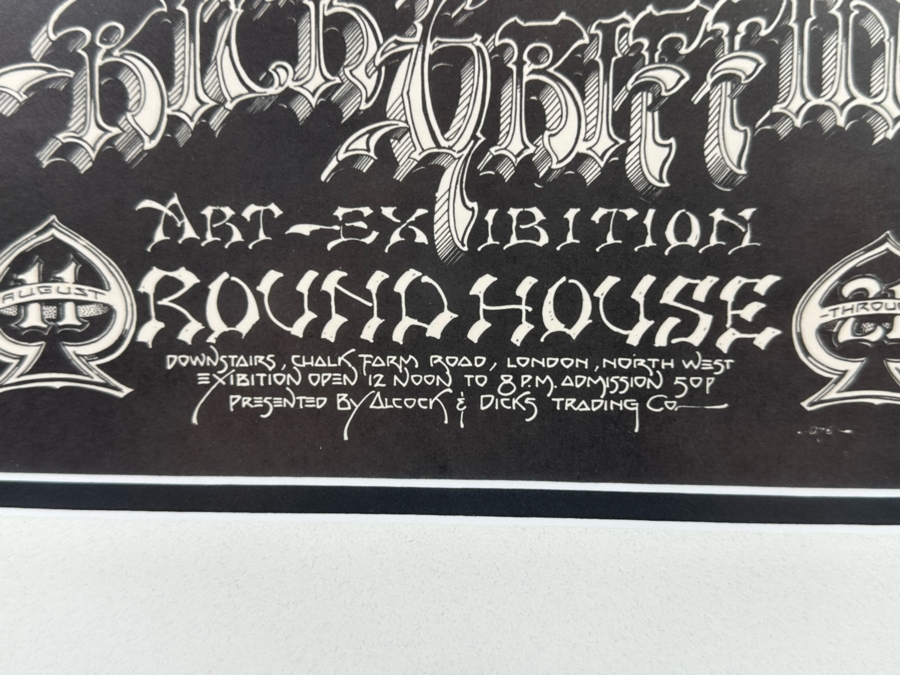 RICK GRIFFIN
ART-EXIBITION
ROUND HOUSE
11
AUGUST
DOWNSTAIRS, CHALK FARM ROAD, LONDON, NORTH WEST
EXIBITION OPEN 12 NOON TO 8 P.M. ADMISSION 50P
PRESENTED BY ALCOCK & DICKS TRADING CO.